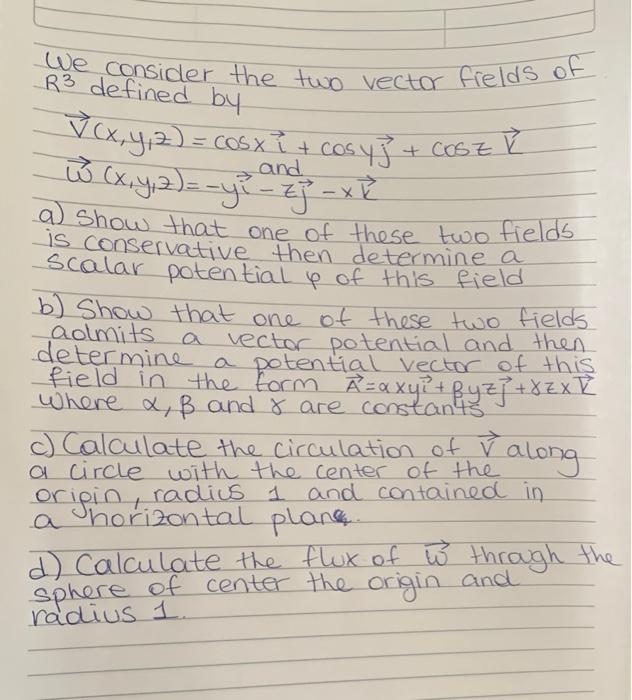 We consider the two vector fields of
R³ defined by
V⃗(x,y,z) = cosx i⃗ + cosy j⃗ + cosz k⃗
and
w⃗(x,y,z) = -y i⃗ - z j⃗ - x k⃗
a) Show that one of these two fields
is conservative then determine a
scalar potential φ of this field
b) Show that one of these two fields
admits a vector potential and then
determine a potential vector of this
field in the form A⃗ = αxy i⃗ + βyz j⃗ + γzx k⃗
where α, β and γ are constants
c) Calculate the circulation of V⃗ along
a circle with the center of the
origin, radius 1 and contained in
a horizontal plane.
d) Calculate the flux of w⃗ through the
sphere of center the origin and
radius 1.